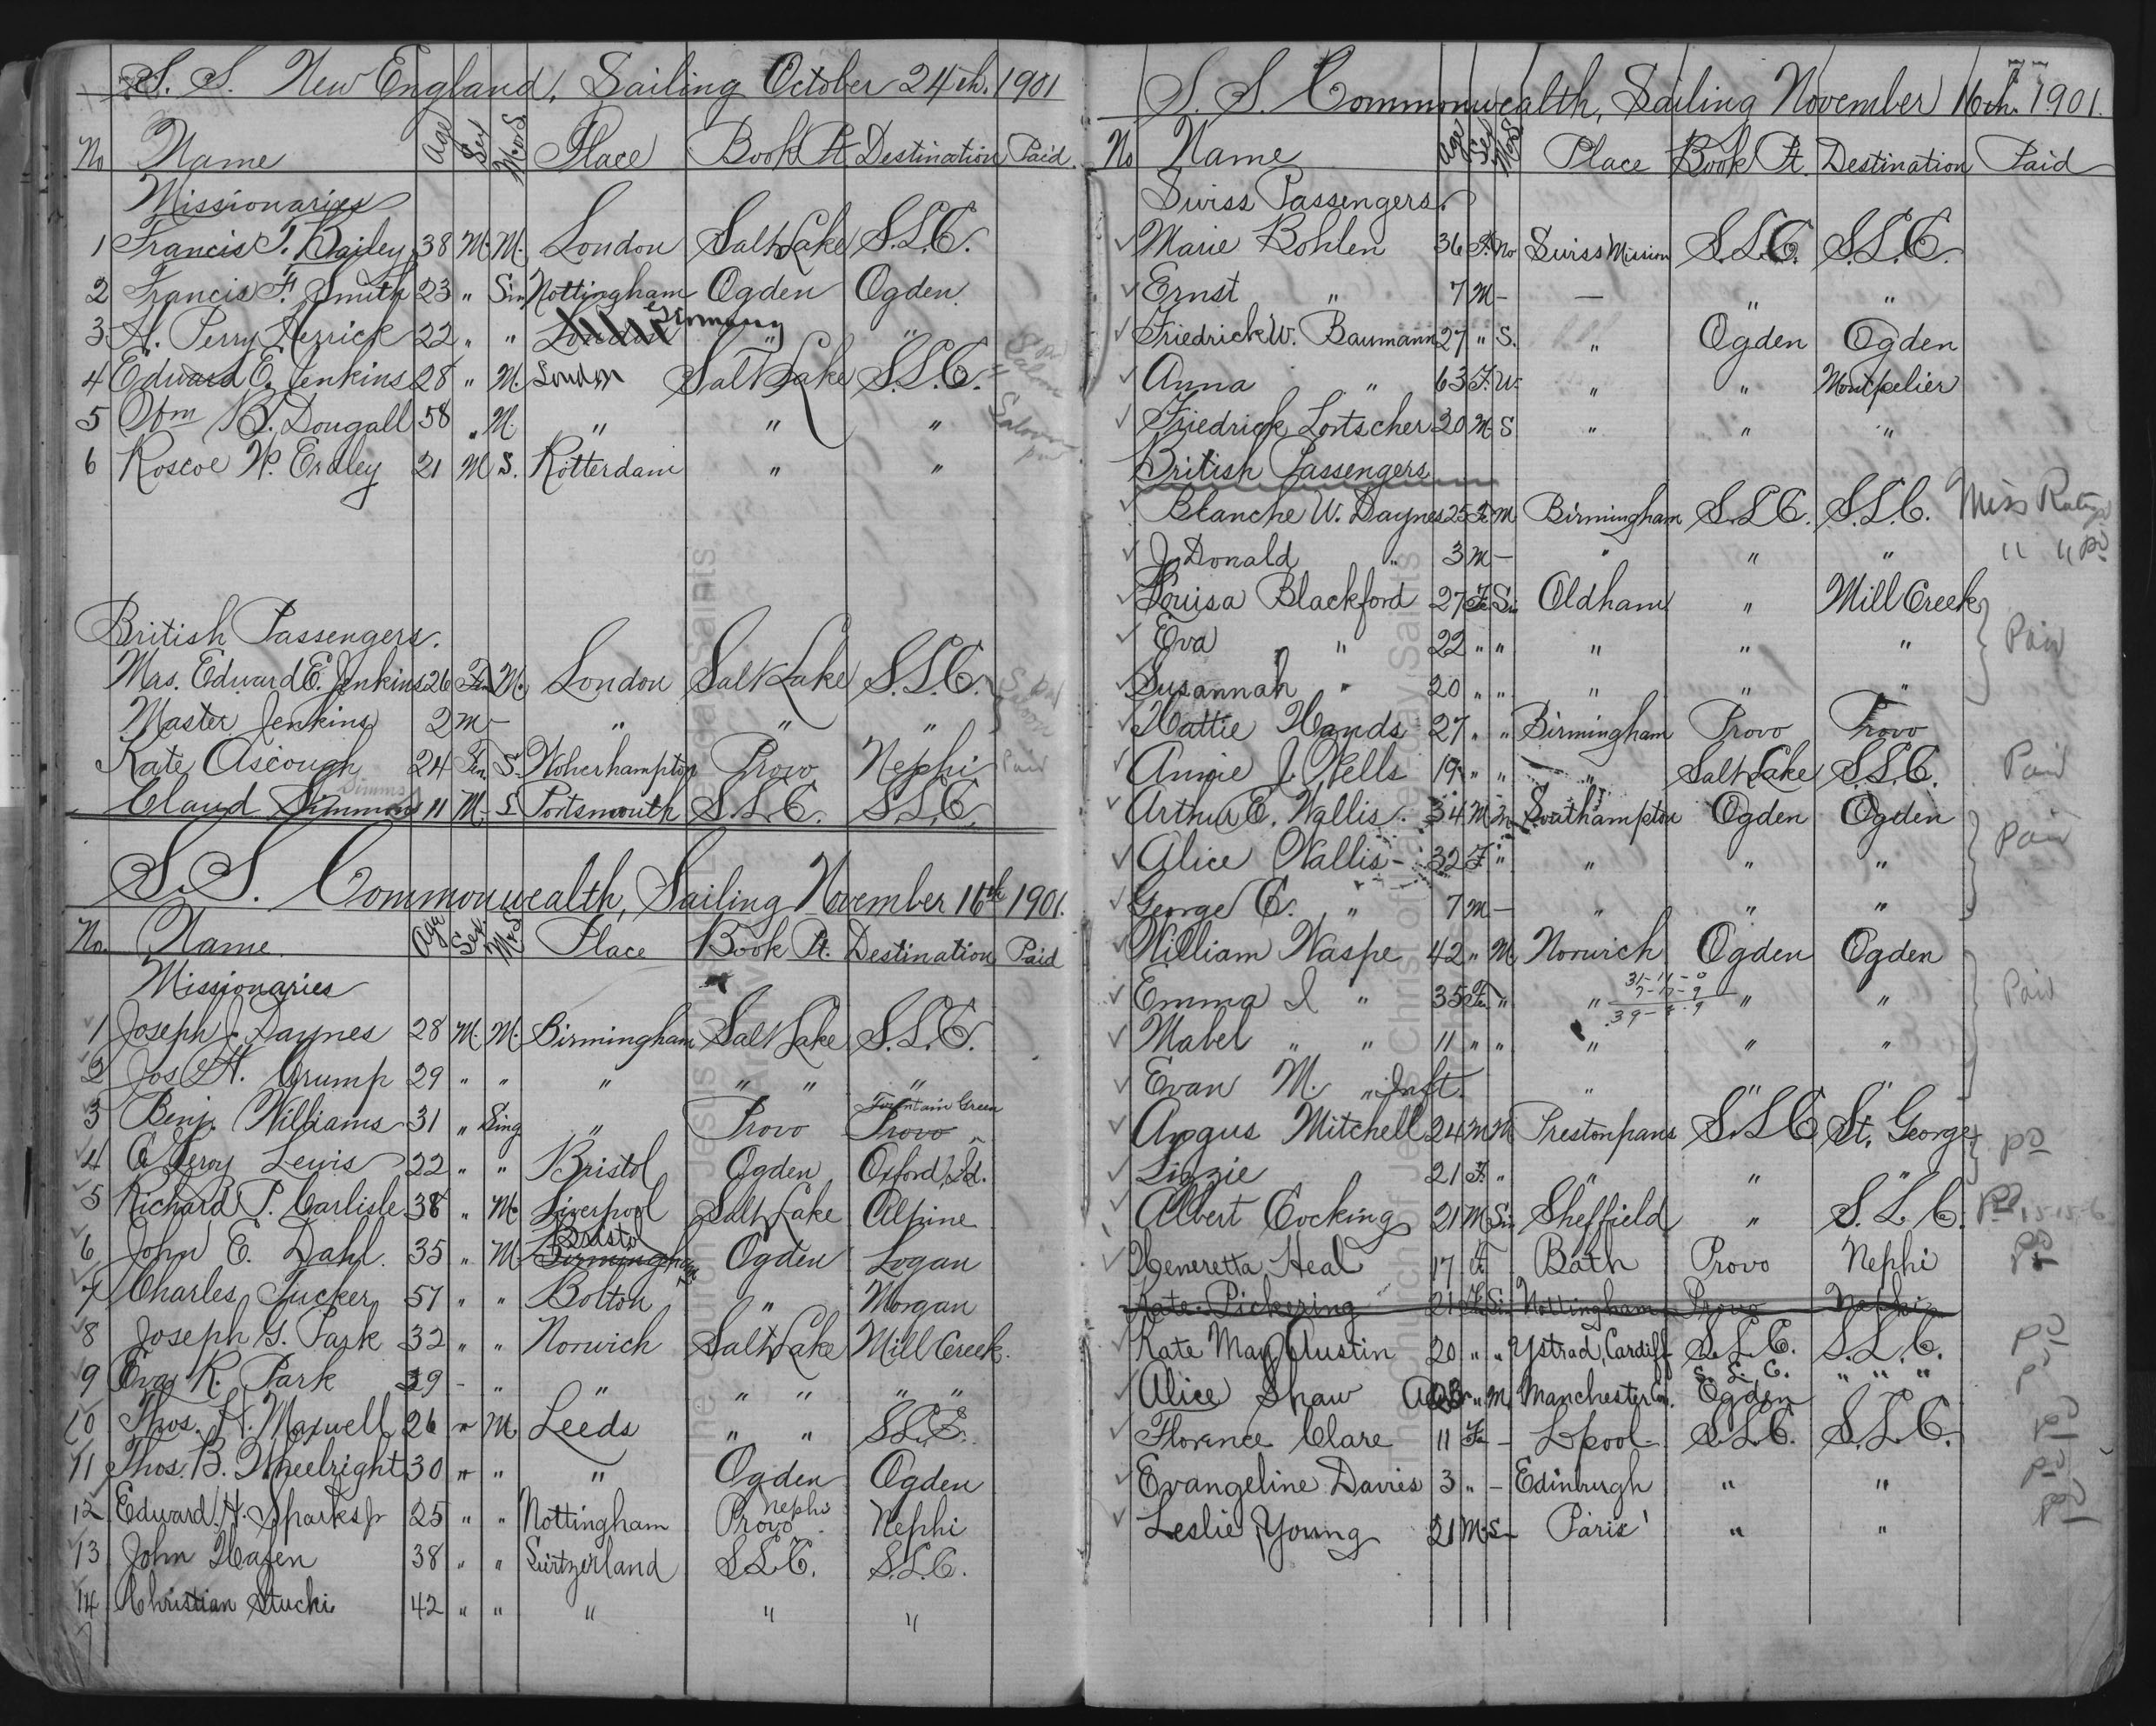 S. S. New England, Sailing October 24th. 1901
No Name Age Sex M or S Place Book Pt. Destination Paid
Missionaries
1 Francis T. Bailey 38 M. M. London Salt Lake S.L.C.
2 Francis F. Smith 23 " Sin Nottingham Ogden Ogden.
3 A. Perry Herrick 22 " " London Germany " "
4 Edward E. Jenkins 28 " M. London Salt Lake S.L.C. Saloon
5 Wm B. Dougall 58 " M. " " " Saloon
6 Roscoe W. Eardley 21 M S. Rotterdam " "
British Passengers.
Mrs. Edward E. Jenkins 26 Fem M. London Salt Lake S.L.C.
Master Jenkins 2 M - " " "
Kate Ascough 24 Fem S. Wolverhampton Provo Nephi Paid
Claud Simmons Simms 11 M. S Portsmouth S.L.C. S.L.C.
S.S. Commonwealth, Sailing November 16th 1901.
No. Name Age Sex M or S Place Book Pt. Destination Paid
Missionaries
1 Joseph J. Daynes 28 M. M. Birmingham Salt Lake S.L.C.
2 Jos. H. Grump 29 " " " " " "
3 Benj. Williams 31 " Sing " Provo Provo Fountain Green
4 C. Leroy Lewis 22 " " Bristol Ogden Oxford, Id.
5 Richard P. Carlisle 38 " M. Liverpool Salt Lake Alpine
6 John E. Dahl. 35 " M. Birmingham Bristol Ogden Logan
7 Charles Tucker 57 " " Bolton " Morgan
8 Joseph G. Park 32 " " Norwich Salt Lake Mill Creek.
9 Eva R. Park 29 - " " " " " "
10 Thos. H. Maxwell 26 " M. Leeds " " S.L.C.
11 Thos. B. Wheelright 30 " " " Ogden Ogden
12 Edward H. Sparks Jr 25 " " Nottingham Provo Nephi Nephi
13 John Hafen 38 " " Switzerland S.L.C. S.L.C.
14 Christian Stucki 42 " " " " "
S. S. Commonwealth, Sailing November 16th. 1901.
No Name Age Sex M or S Place Book Pt. Destination Paid
Swiss Passengers.
Marie Bohlen 36 F. Swiss Mission S.L.C. S.L.C.
Ernst " 7 M - — " "
Friedrick W. Baumann 27 " S. " Ogden Ogden
Anna " 63 F. W. " " Montpelier
Friedrick Lortscher 20 M S " " "
British Passengers
Blanche W. Daynes 25 F. M Birmingham S.L.C. S.L.C. Miss Rates
J. Donald " 3 M - " " " " " pd
Louisa Blackford 27 Fe Sin Oldham " Mill Creek
Eva " 22 " " " " " Paid
Susannah " 20 " " " " "
Hattie Hands 27 " " Birmingham Provo Provo
Annie J. Wells 19 " " " Salt Lake S.L.C. Paid
Arthur E. Wallis. 34 M M Southampton Ogden Ogden Paid
Alice Wallis - 32 F. " " " "
George E. " 7 M - " " "
William Waspe 42 " M Norwich Ogden Ogden
31-11-0
7-17-9
39-8-9
Emma I " 35 Fe " " " " Paid
Mabel " " 11 " " " " "
Evan M. " Inft. " " "
Angus Mitchell 24 M M Prestonpans S.L.C St. George pd
Lizzie 21 F. " " " "
Albert Cocking 21 M Sin Sheffield " S.L.C. Pd 15-15-6
Heneretta Heal 17 F. Bath Provo Nephi pd
Kate Pickering 21 F. Sin Nottingham Provo Nephi
Kate May Austin 20 " " Ystrad, Cardiff S.L.C. S.L.C. pd
Alice Shaw " M Manchester Con. Ogden S. L. C. " " " pd
Florence Clare 11 Fe - Lpool - S.L.C. S.L.C. pd
Evangeline Davies 3 " - Edinburgh " " pd
Leslie Young 21 M. S - Paris " " pd